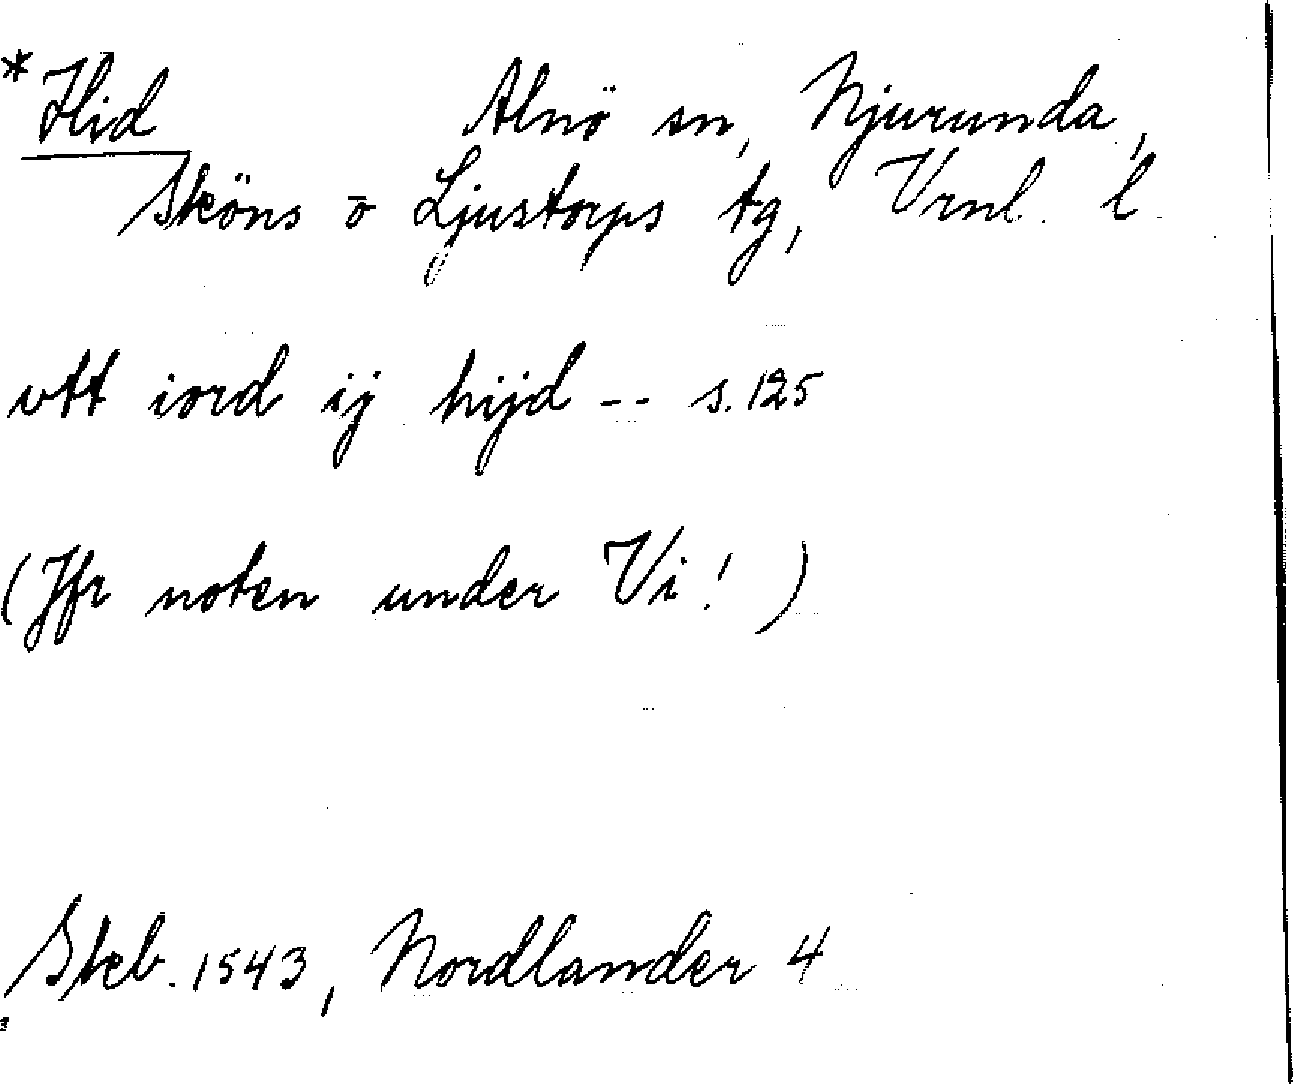 *Hid Alnö sn, Njurunda,
Sköns o Ljustorps tg, Vrnl. l
vtt iord ij hijd -- s. 125
(Jfr noten under Vi! )
Skeb. 1543, Nordlander 4